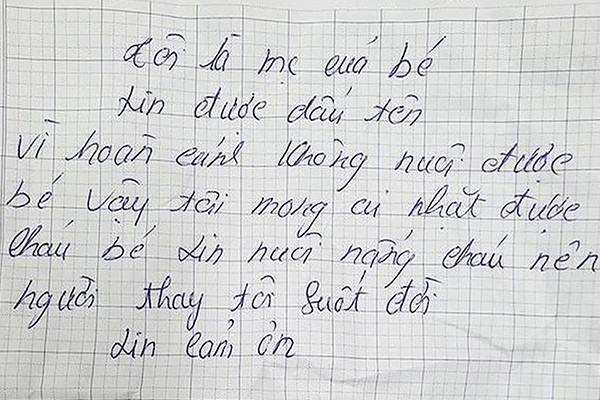 Tôi là mẹ cuả bé
xin được dấu tên
vì hoàn cảnh không nuôi được
bé vậy tôi mong ai nhặt được
cháu bé xin nuôi nấng cháu nên
người thay tôi suốt đời
xin cảm ơn